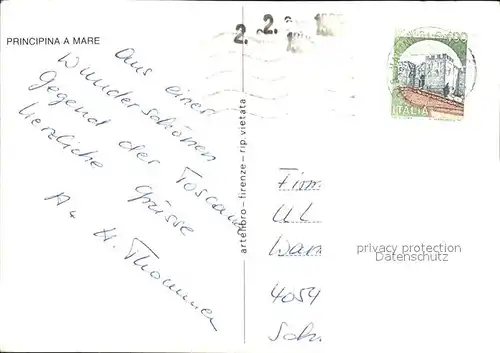 PRINCIPINA A MARE
Aus einer
Wunderschönen
Gegend der Toscana
herzliche Grüsse
A. H. Thommen
artelibro - firenze - rip. vietata
2. 2.
ITALIA
Firm
UL
Wan
4054
Sch
privacy protection
Datenschutz